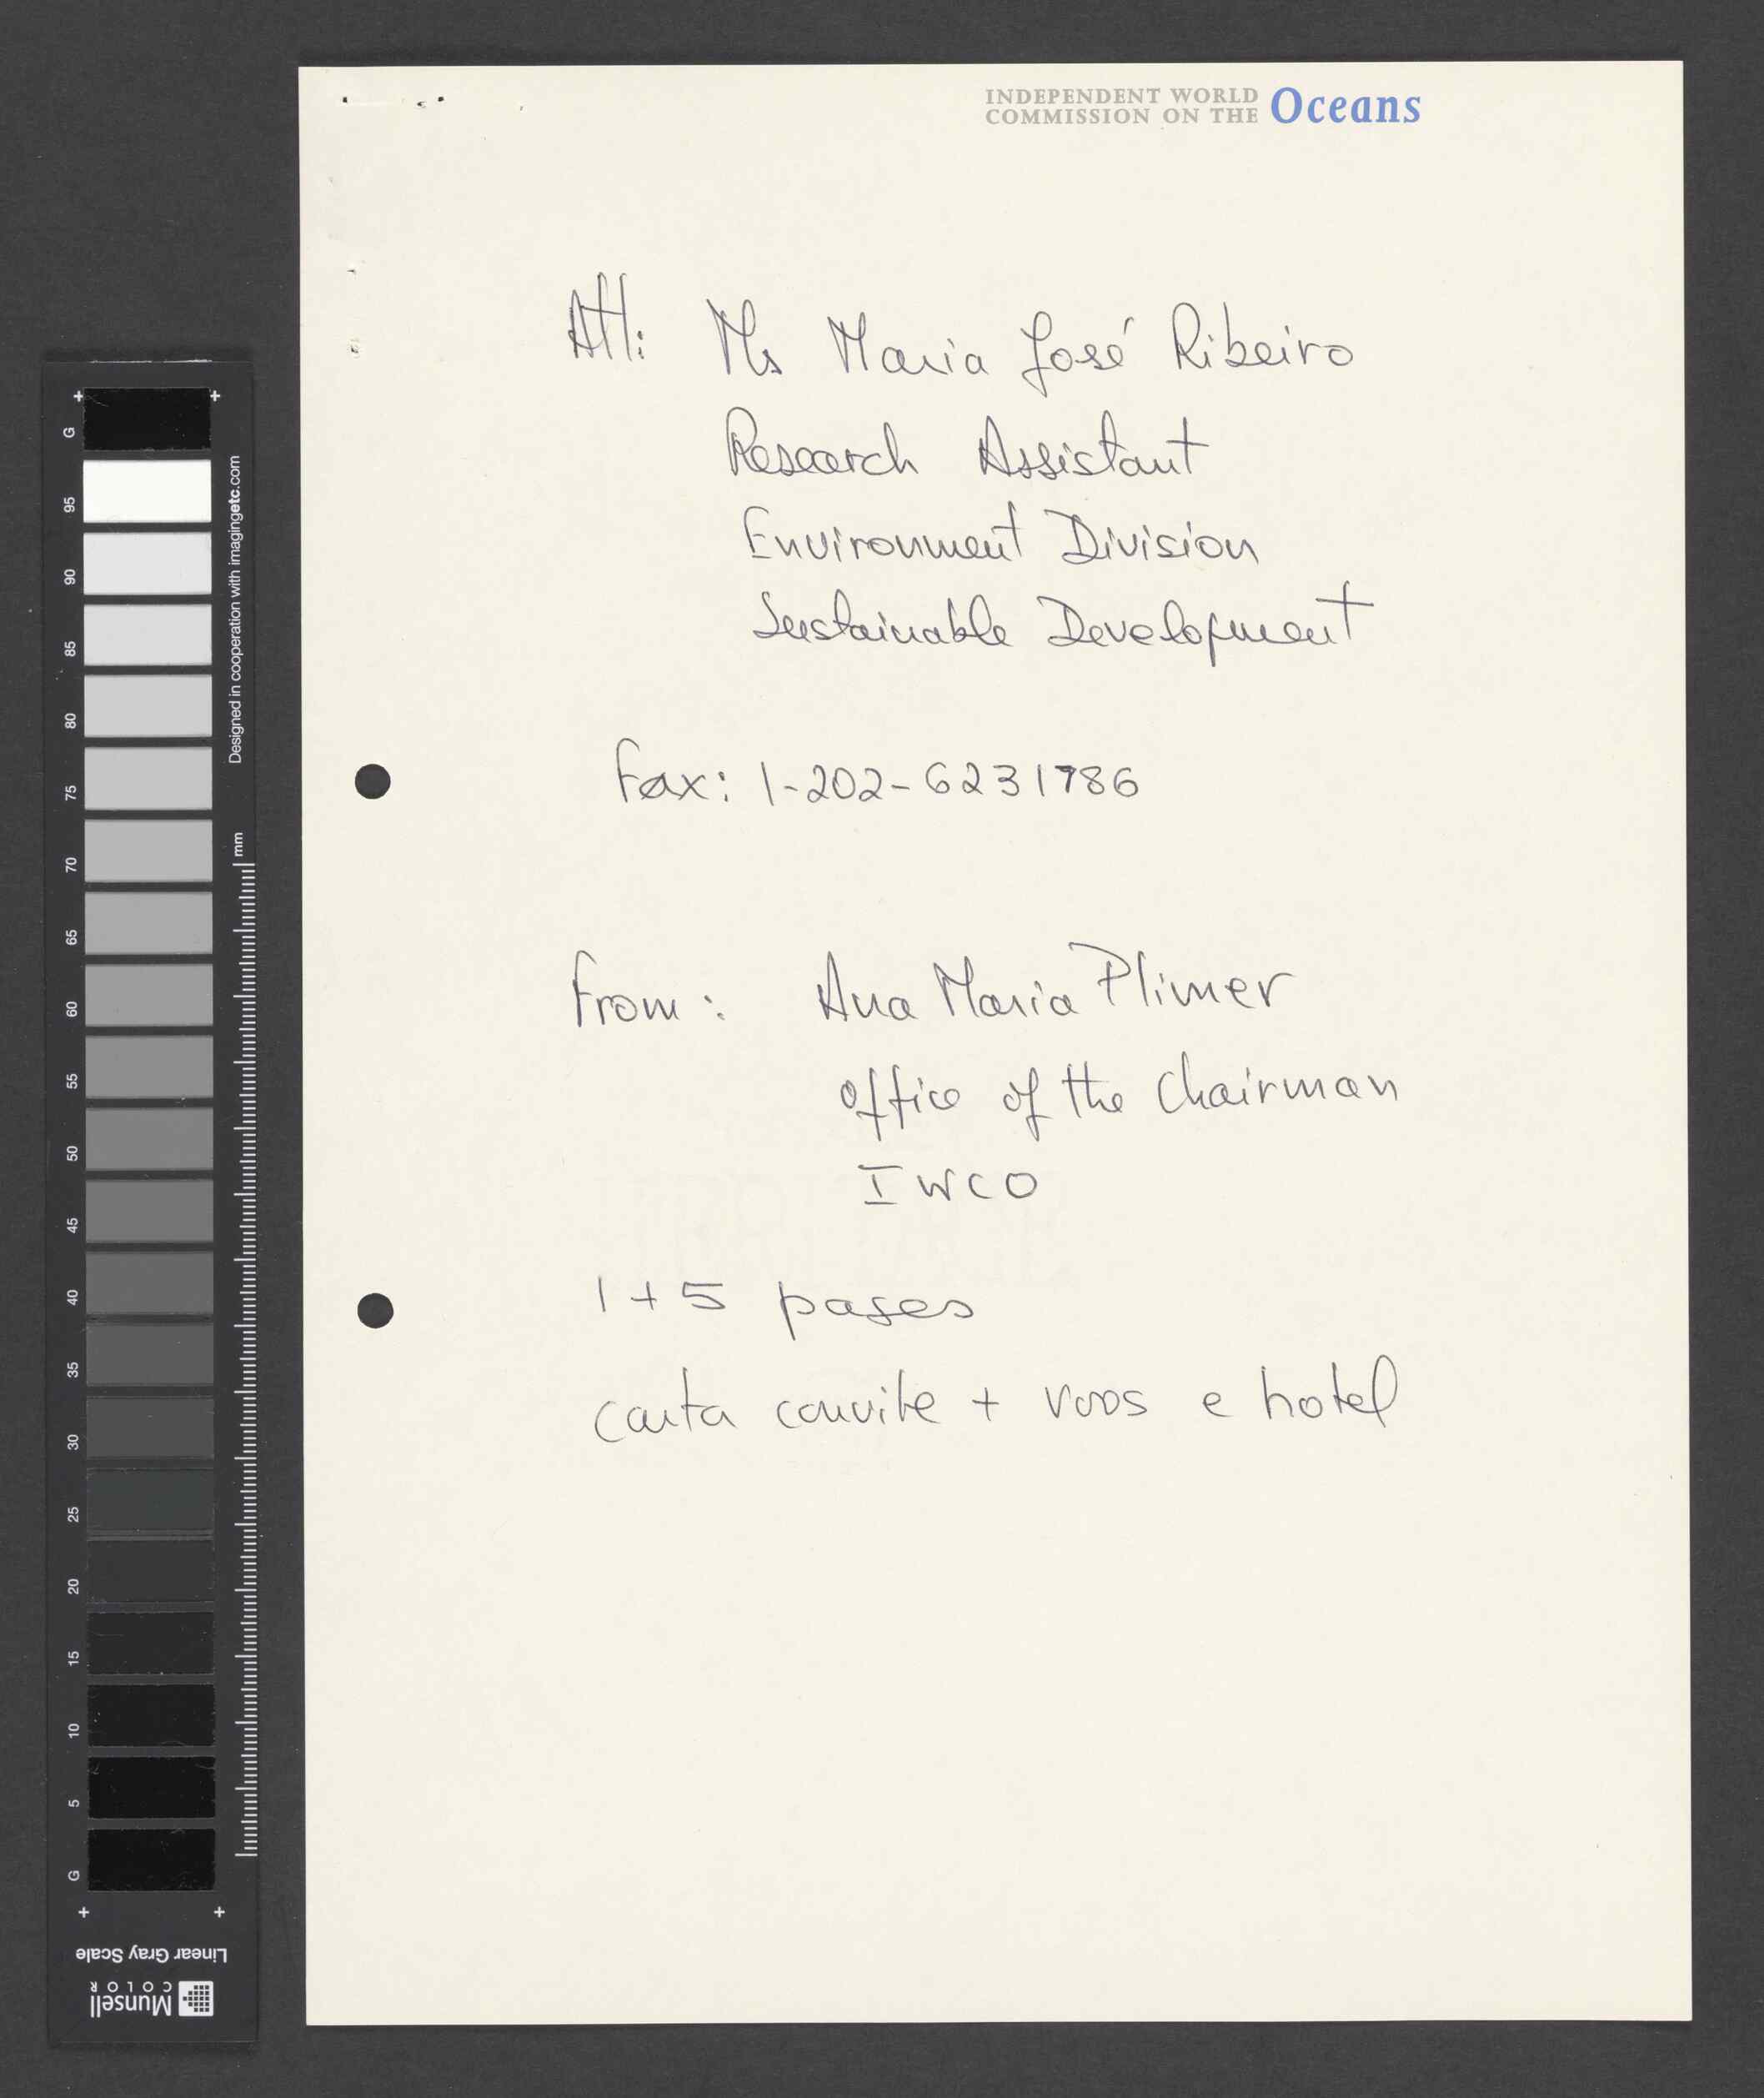 INDEPENDENT WORLD
COMMISSION ON THE Oceans
Att: Ms Maria José Ribeiro
Research Assistant
Environment Division
Sustainable Development
Fax: 1-202-6231786
From: Ana Maria Plimer
Office of the Chairman
IWCO
1+5 pages
carta convite + voos e hotel
G
95
90
85
80
75
70
65
60
55
50
45
40
35
30
25
20
15
10
5
G
Designed in cooperation with imagingetc.com
mm
Linear Gray Scale
Munsell
COLOR